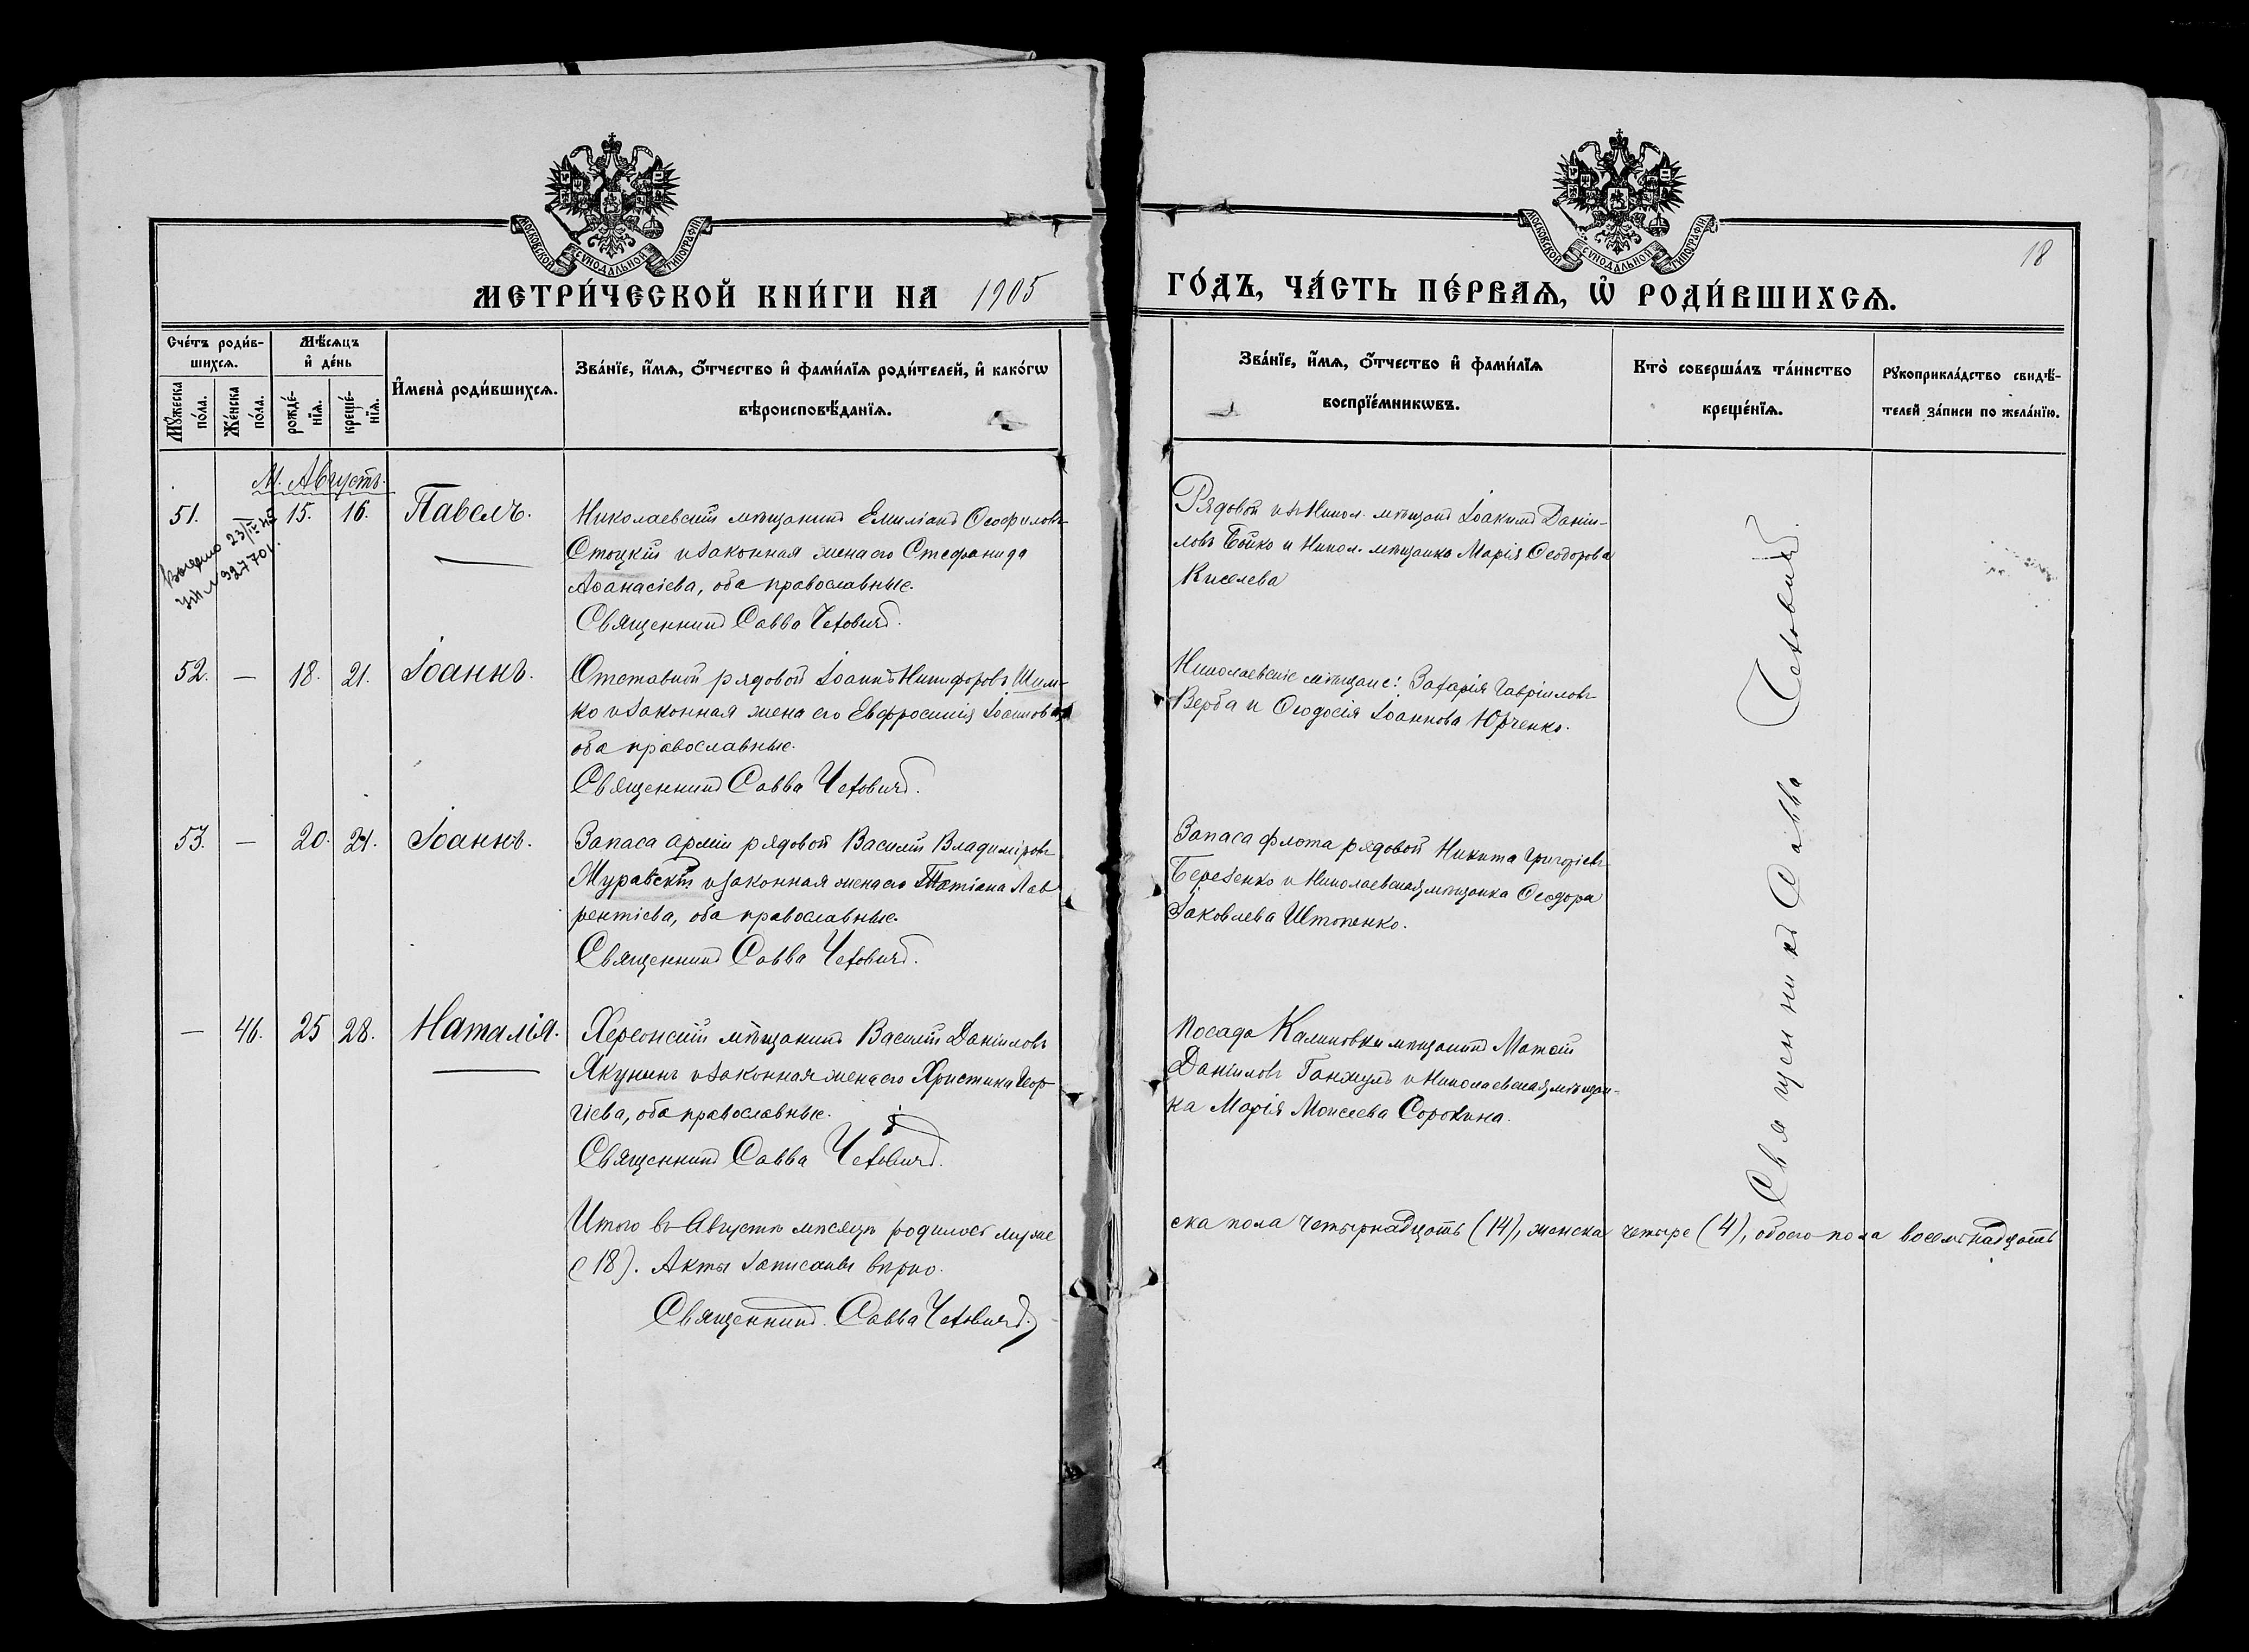 МОСКОВСКОЙ СѴНОДАЛЬНОЙ ТИПОГРАФІИ
МОСКОВСКОЙ СѴНОДАЛЬНОЙ ТИПОГРАФІИ
18
МЕТРИ́ЧЕСКОЙ КНИ́ГИ НА 1905
ГО́ДЪ, ЧА́СТЬ ПЕ́РВАѦ, Ѡ҆ РОДИ́ВШИХСѦ.
Сче́тъ роди́в-
шихсѧ.
Мꙋ́жеска
по́ла.
Же́нска
по́ла.
Мѣ́сѧцъ
и҆ де́нь
рожде́-
нїѧ.
креще́-
нїѧ.
И҆мена̀ роди́вшихсѧ.
Зва́нїе, и҆́мѧ, ѻ҆́тчество и҆ фами́лїѧ роди́телей, и҆ како́гѡ
вѣроисповѣ́данїѧ.
Зва́нїе, и҆́мѧ, ѻ҆́тчество и҆ фами́лїѧ
воспрїе́мникѡвъ.
Кто̀ соверша́лъ та́инство
креще́нїѧ.
Рꙋкоприкла́дство свидѣ́-
телей за́писи по жела́нїю.
М. Августъ.
51. 15. 16. Павелъ.
Николаевскій мѣщанинъ Емиліанъ Ѳеофиловъ
Стоцкій и законная жена его Стефанида
Аѳанасіева, оба православные.
Священникъ Савва Чеховичъ.
Рядовой изъ Никол. мѣщанъ Іоакимъ Даніи-
ловъ Бойко и Никол. мѣщанка Марія Ѳеодорова
Киселева
52. — 18. 21. Іоаннъ.
Отставной рядовой Іоаннъ Никифоровъ Шим-
ко и законная жена его Евфросинія Іоаннова
оба православные.
Священникъ Савва Чеховичъ.
Николаевскіе мѣщане: Захарія Гавріиловъ
Верба и Ѳеодосія Іоаннова Юрченко.
53. — 20. 21. Іоаннъ.
Запаса арміи рядовой Василій Владиміровъ
Муравскій и законная жена его Татіана Лав
рентіева, оба православные.
Священникъ Савва Чеховичъ.
Запаса флота рядовой Никита Григорьевъ
Березенко и Николаевская мѣщанка Ѳеодора
Іаковлева Штопенко.
— 46. 25 28. Наталія.
Херсонскій мѣщанинъ Василій Даніиловъ
Якунинъ и законная жена его Христина Геор-
гіева, оба православные.
Священникъ Савва Чеховичъ.
Посада Калиновки мѣщанинъ Матѳій
Даніиловъ Ганжулъ и Николаевская мѣщан-
ка Марія Моисеева Сорокина.
Священникъ Савва Чеховичъ.
Итого въ Августѣ мѣсяцѣ родилось муже
ска пола четырнадцать (14), женска четыре (4), обоего пола восемнадцать
(18). Акты записаны вѣрно.
Священникъ Савва Чеховичъ.